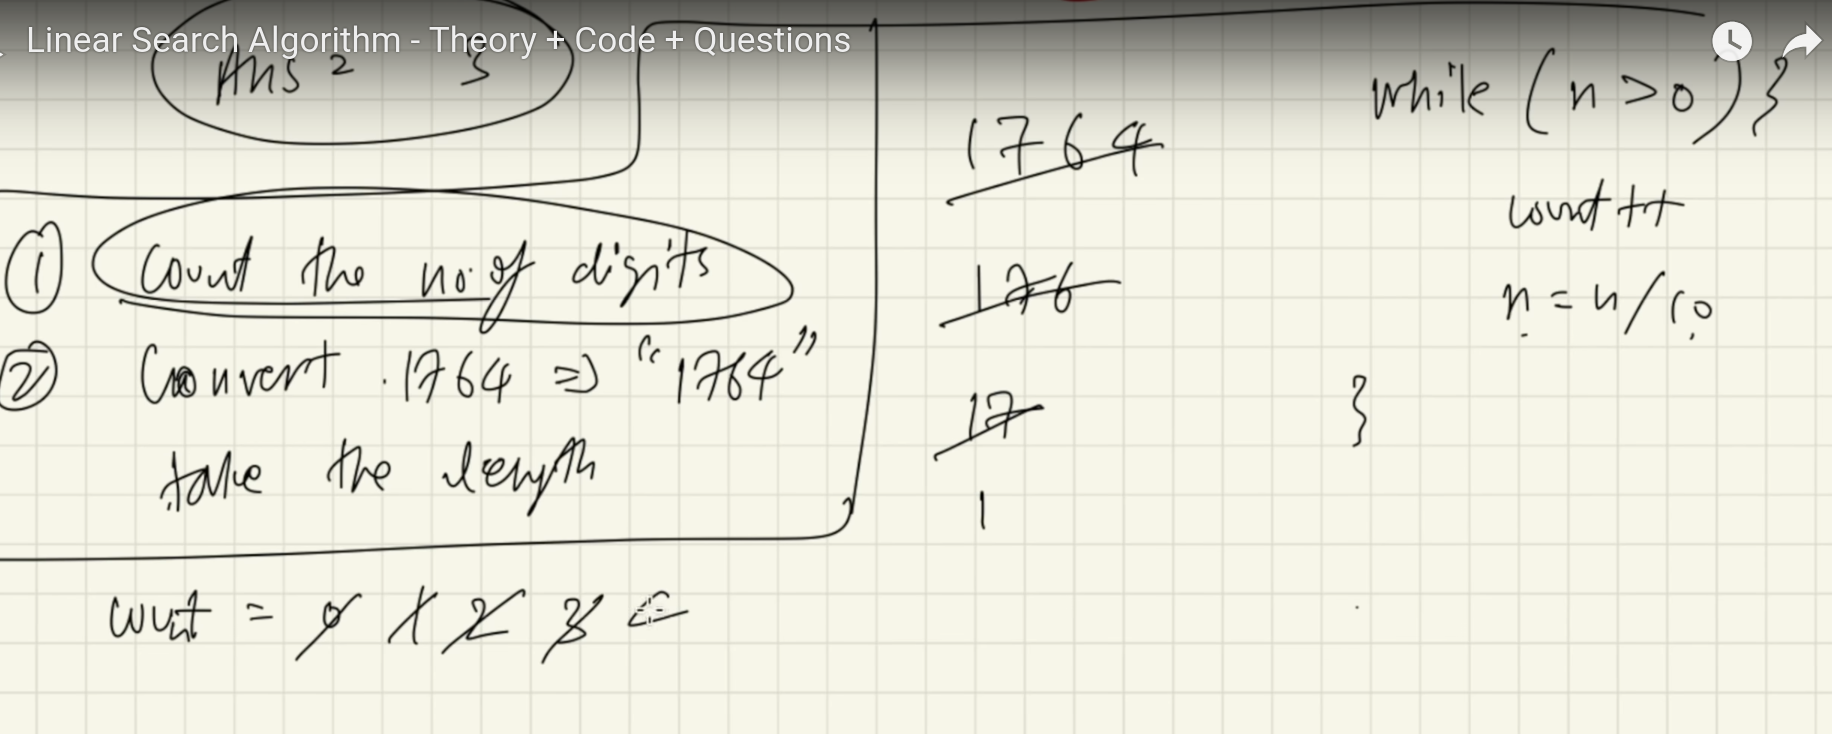 Linear Search Algorithm - Theory + Code + Questions
Ans = 3
① Count the no. of digits
② Convert 1764 => "1764"
take the length
count = 0 1 2 3
1764
176
17
1
while (n>0) {
count++
n = n/10
}